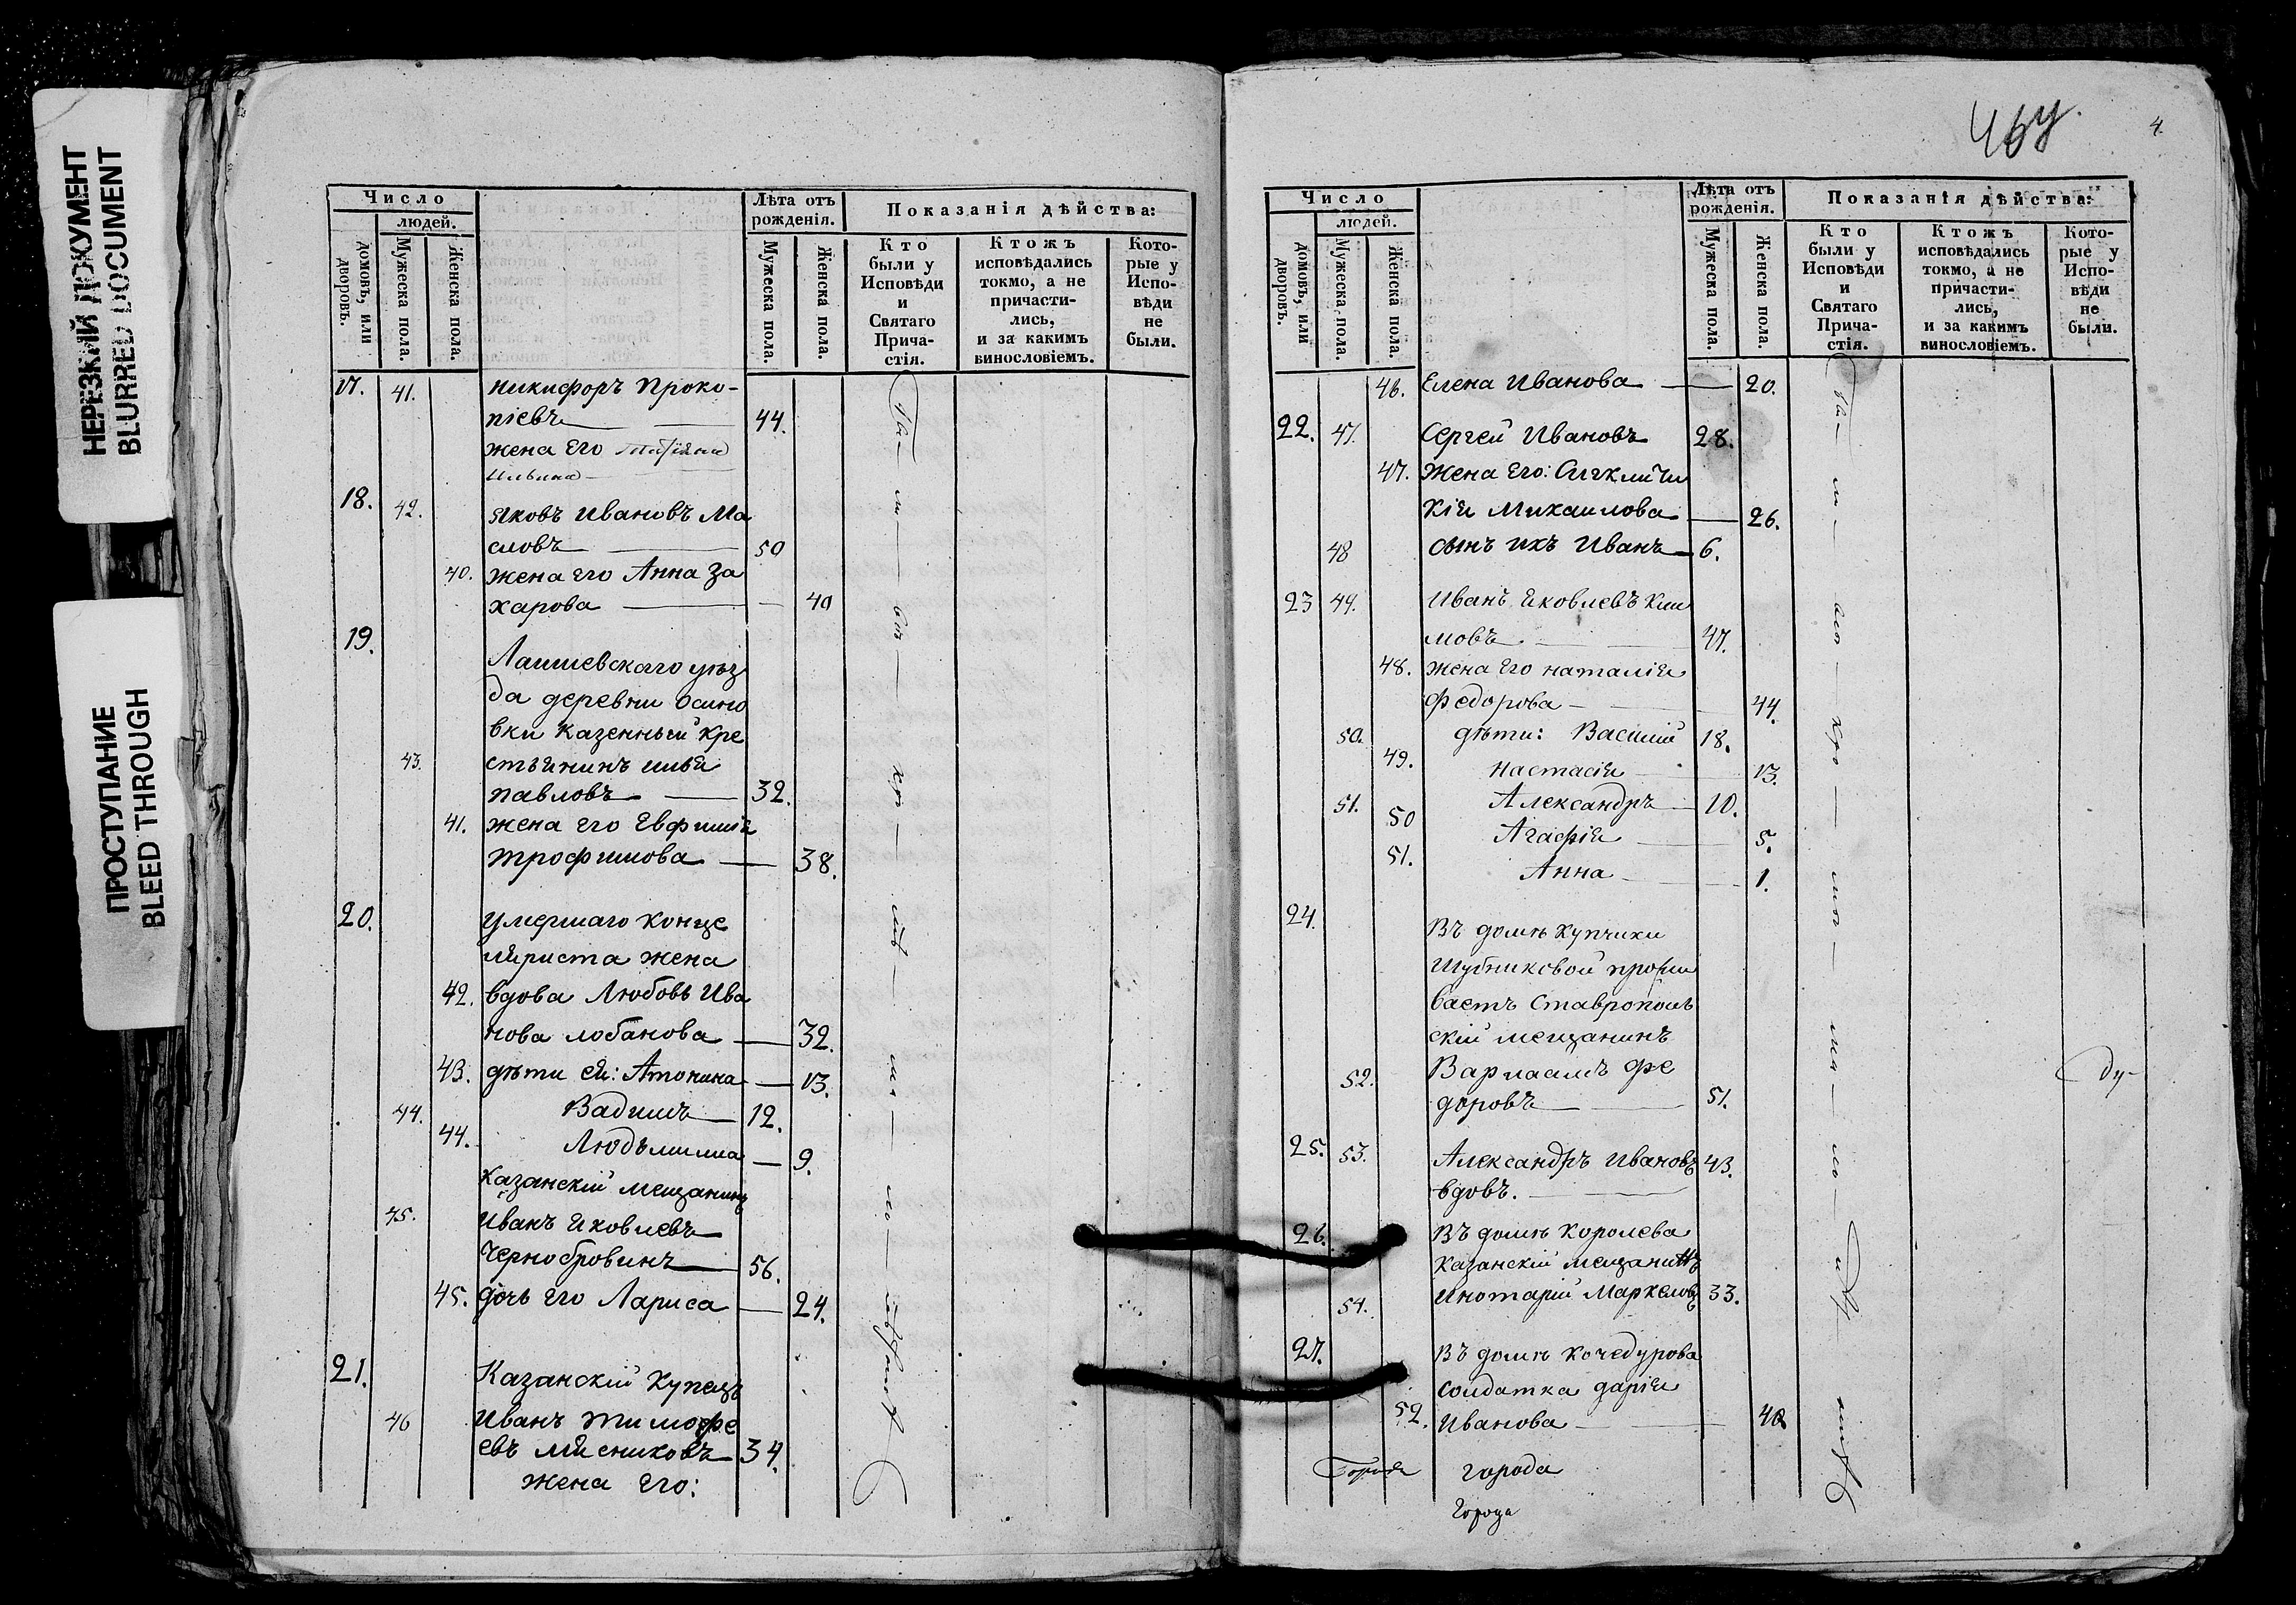 НЕРЕЗКИЙ ДОКУМЕНТ
BLURRED DOCUMENT
ПРОСТУПАНИЕ
BLEED THROUGH
Число
людей.
домовъ, или дворовъ.
Мужеска пола.
Женска пола.
Лѣта отъ рожденія.
Мужеска пола.
Женска пола.
Показанія дѣйства:
Кто были у Исповѣди и Святаго Прича-стія.
Ктожъ исповѣдались токмо, а не причасти-лись, и за какимъ винословіемъ.
Кото-рые у Испо-вѣди не были.
17. 41. никифоръ Проко-
піевъ 44.
жена его Татіяна
Ильина
18. 42. Яковъ Ивановъ Ма
словъ 50
40. жена его Анна За
харова 40
19. Лаишевскаго уѣз
да деревни Осино
вки казенный кре
43. стьянинъ илья
павловъ 32.
41. жена его Евфимія
трофимова 38.
20. умершаго конце
ляриста жена
42. вдова Любовь Ива
нова лобанова 32.
43. дѣти ея: Атонина 13.
44. Вадимъ 12.
44. Людъмила 9.
Казанскій мещанинъ
45. Иванъ Яковлевъ
Чернобровинъ 56.
45. дочь его Лариса 24.
21. Казанскій купецъ
46 Иванъ тимофе
евъ мясниковъ 34.
жена его:
4.
Число
людей.
домовъ, или дворовъ.
Мужеска пола.
Женска пола.
Лѣта отъ рожденія.
Мужеска пола.
Женска пола.
Показанія дѣйства:
Кто были у Исповѣди и Святаго Прича-стія.
Ктожъ исповѣдались токмо, а не причасти-лись, и за какимъ винословіемъ.
Кото-рые у Испо-вѣди не были.
46. Елена Иванова 20.
22. 47. Сергей Ивановъ 28.
47. жена его:
кія Михаилова 26.
48 сынъ ихъ Иванъ 6.
23 49. Иванъ Яковлевъ Кли
мовъ 47.
48. жена его наталія
федорова 44.
50. дѣти: Василій 18.
49. настасія 13.
51. Александръ 10.
50 Агафія 5.
51. Анна 1.
24. Въ домѣ купчихи
Шубниковой прожи
ваетъ Ставрополь
скій мещанинъ
52. Варлаамъ фе
доровъ 51.
25. 53. Александръ Ивановъ 43.
вдовъ.
26. Въ домѣ Королева
казанскій мещанинъ
54. Маркеловъ 33.
27. Въ домѣ кочедурова
солдатка дарія
52. Иванова
города
Города